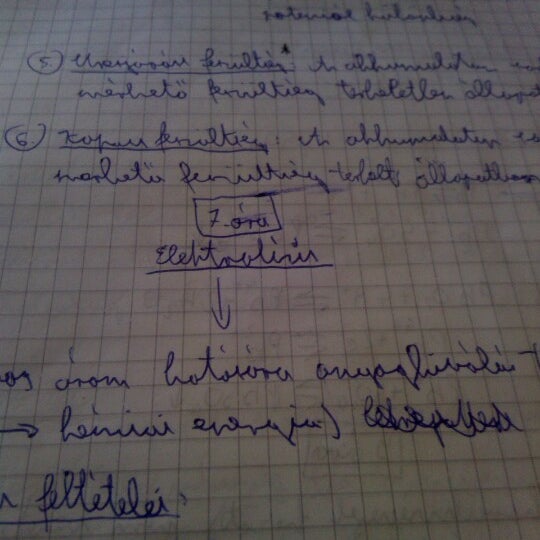 ⑤ Üresjárási feszültség: Az akkumulátor
mérhető feszültség terheletlen állapot
⑥ Kapocsfeszültség: Az akkumulátor
mérhető feszültség terhelt állapotban
7. óra
Elektrolízis
↓
áram hatására anyagkiválás
→ kémiai energia)
feltételei: